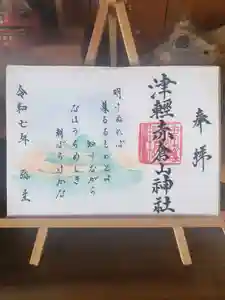 奉拝
津軽赤倉山神社
明けぬれば
暮るるものとは
知りながら
なほうらめしき
朝ぼらけかな
令和七年 弥生